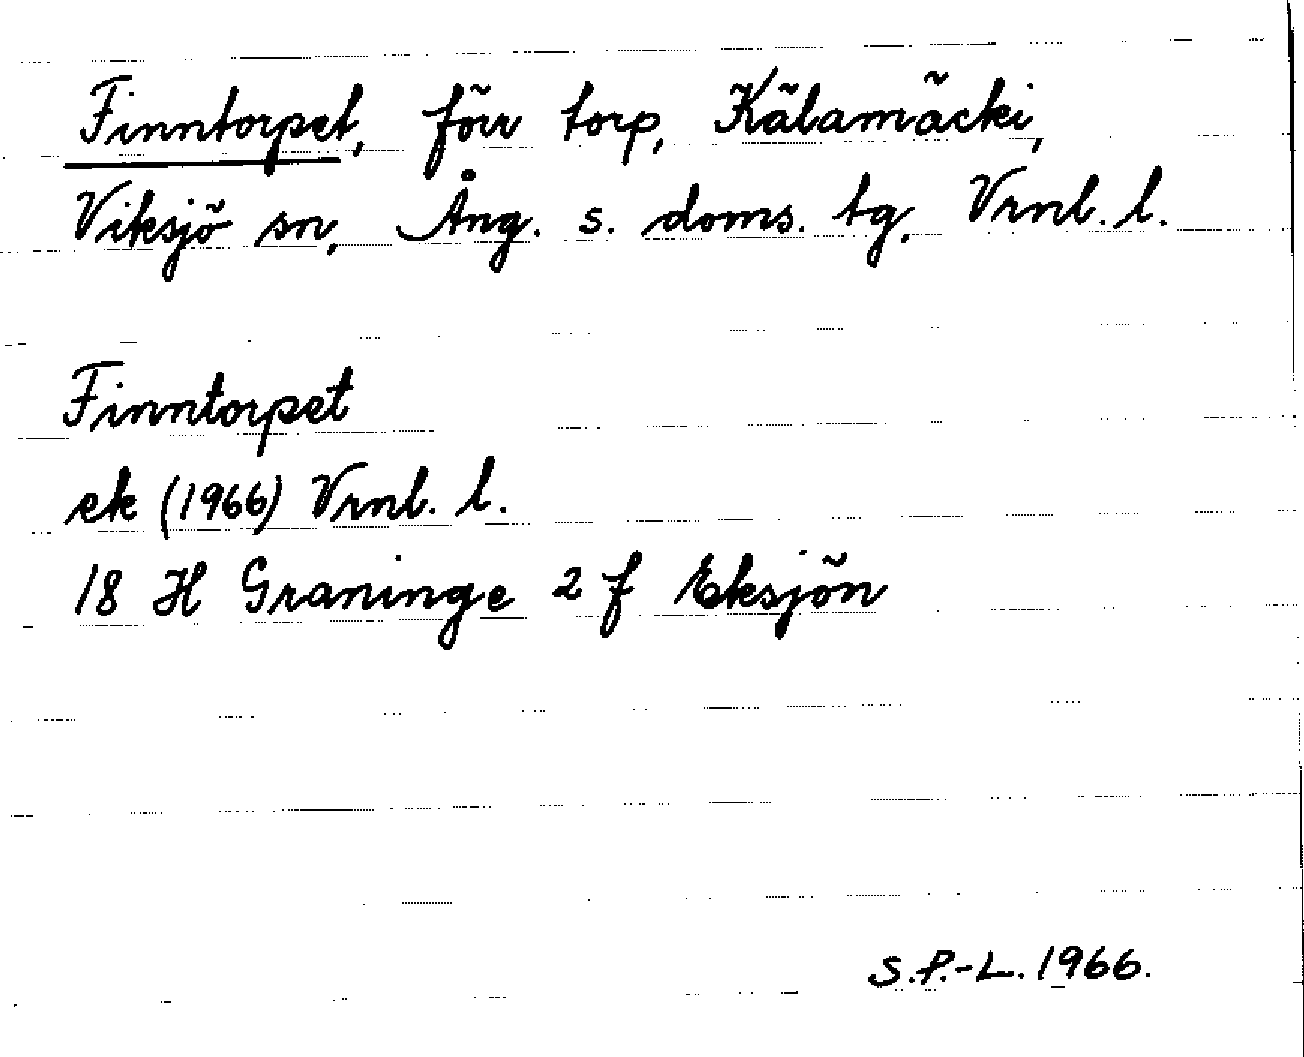 Finntorpet, förr torp, Kälamäcki,
Viksjö sn, Ång. s. doms. tg, Vrnl. l.
Finntorpet
ek (1966) Vrnl. l.
18 H Graninge 2 f Eksjön
S.P.-L. 1966.